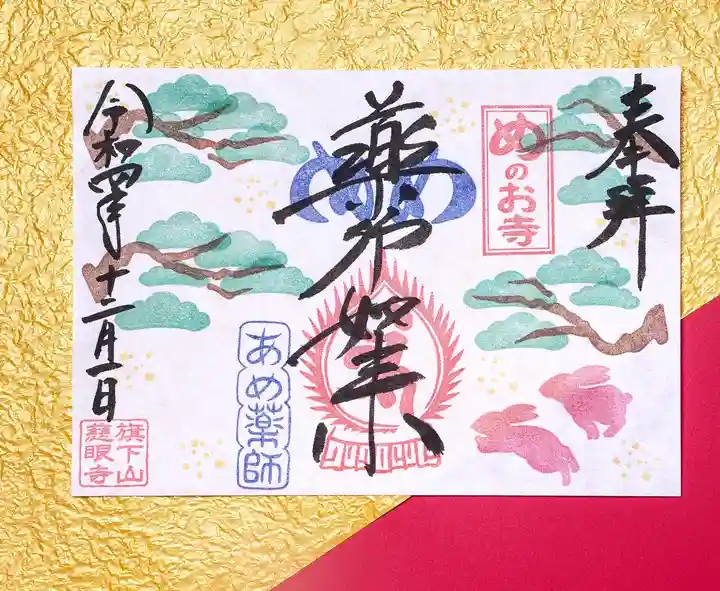 奉拝
めのお寺
め
薬师如来
あめ薬師
令和四年十二月一日
旗下山
慈眼寺